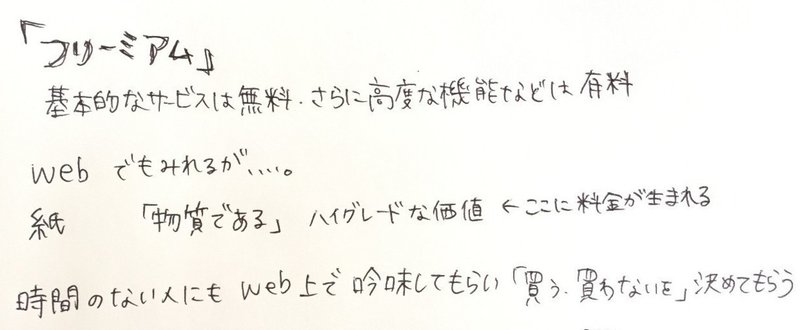 「フリーミアム」
基本的なサービスは無料.さらに高度な機能などは有料
web でもみれるが.....。
紙 「物質である」 ハイグレードな価値 ←ここに料金が生まれる
時間のない人にも web上で吟味してもらい「買う.買わないを」決めてもらう